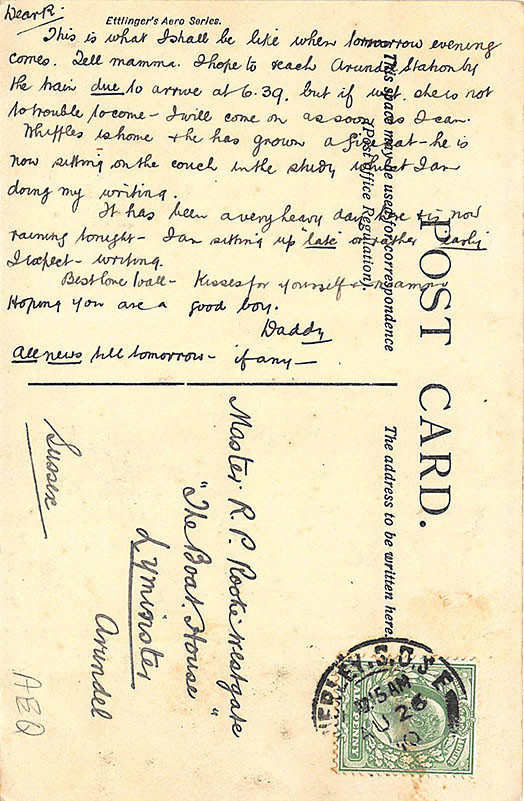 Dear R.
Ettlinger's Aero Series.
This is what I shall be like when tomorrow evening
comes. Tell mamma. I hope to reach Arundel Station by
the train due to arrive at 6.39. but if wet. she is not
to trouble to come - I will come on as soon as I can.
Whiffles is home & he has grown a fine cat - he is
now sitting on the couch in the study whilst I am
doing my writing.
It has been a very heavy day here & is now
raining tonight - I am sitting up "late" or rather early
I expect - writing.
Best love to all - Kisses for yourself & mamma
Hoping you are a good boy.
Daddy
All news till tomorrow - if any -
This space may be used for correspondence
(Post Office Regulation).
POST CARD.
The address to be written here.
Master. R. P. Rooke Westgate
"The Boat. House"
Lyminster
Arundel
Sussex
AEQ
S.O.S.E
12.15 AM
AU 26
10
HALFPENNY